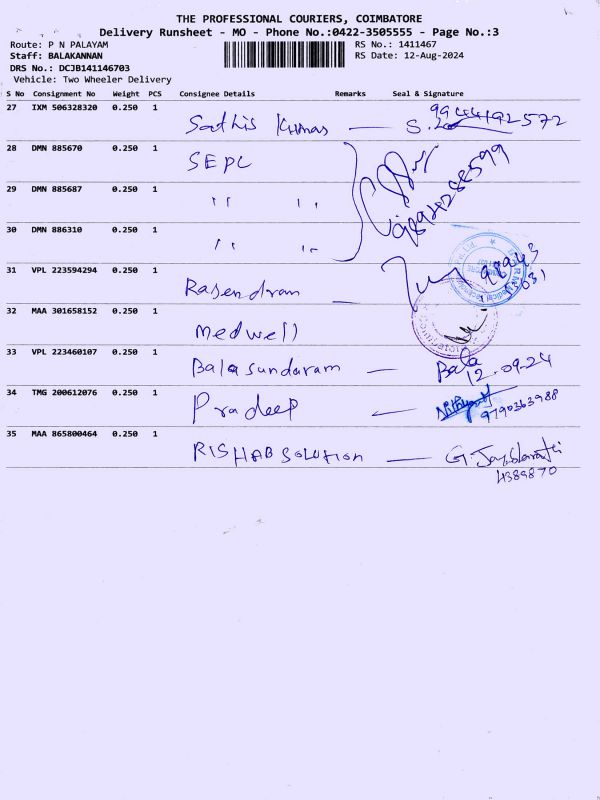 THE PROFESSIONAL COURIERS, COIMBATORE
Delivery Runsheet - MO - Phone No.:0422-3505555 - Page No.:3
Route: P N PALAYAM RS No.: 1411467
Staff: BALAKANNAN RS Date: 12-Aug-2024
DRS No.: DCJB141146703
Vehicle: Two Wheeler Delivery
S No Consignment No Weight PCS Consignee Details Remarks Seal & Signature
27 IXM 506328320 0.250 1 Sathis Kumar — S. 9944192572
28 DMN 885670 0.250 1 SEPC
29 DMN 885687 0.250 1 " "
9894288599
30 DMN 886310 0.250 1 " "
31 VPL 223594294 0.250 1 Rasendram
32 MAA 301658152 0.250 1 Medwell
33 VPL 223460107 0.250 1 Balasundaram — Bala
12-09-24
34 TMG 200612076 0.250 1 Pradeep —
9790363988
35 MAA 865800464 0.250 1 RISHAB SOLUTION — G.
4389870